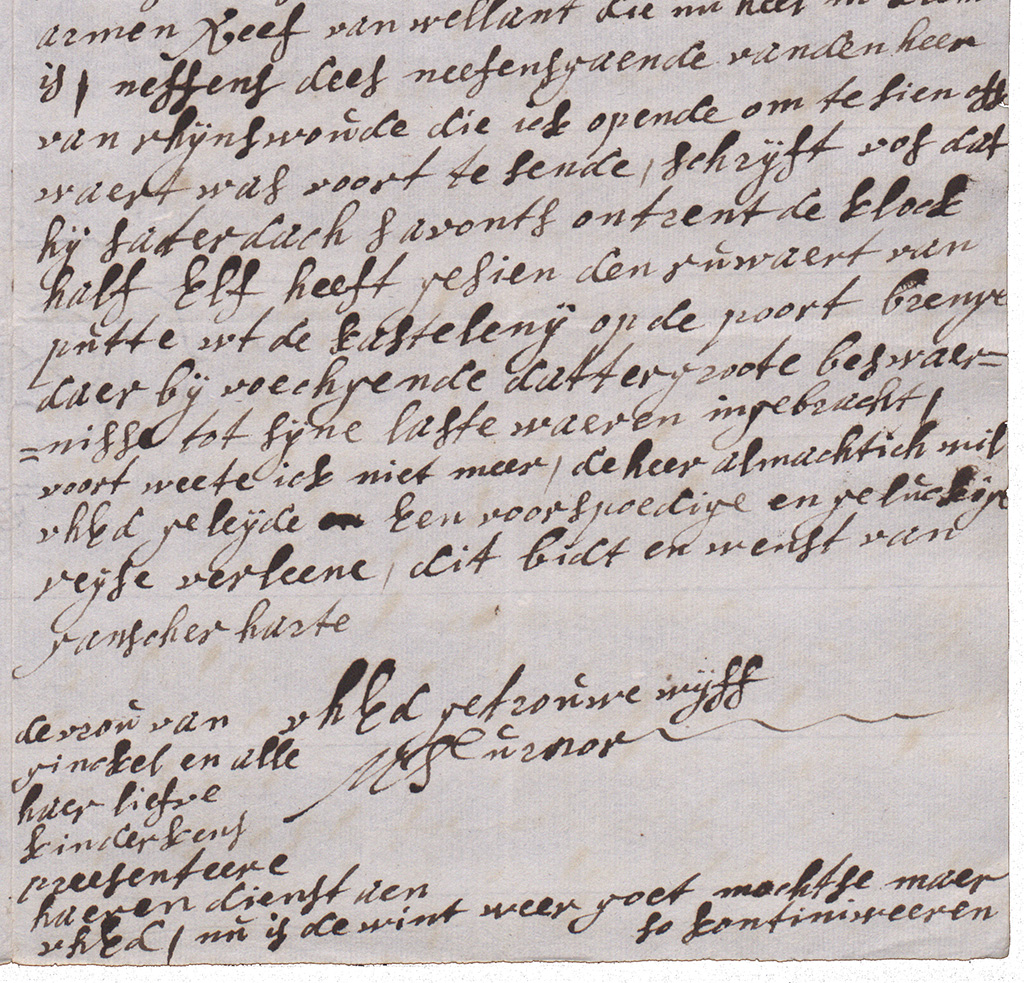 armen Neef van wellant die nu heel in
is, neffens dees neefensgaende vanden heer
van rhÿnswoude die ick opende om te sien off
waert was voort te sende, schrÿft vos dat
hÿ saterdach savonts ontrent de klock
half Elf heeft gesien den ruwaert van
putte wt de kastelenÿ op de poort brenge
daer bÿ voechgende datter groote beswaer=
=nisse tot sÿne laste waeren ingebracht,
voort weete ick niet meer, de heer almachtich wil
uhEd geleÿde Een voorspoedige en geluckÿge
reÿse verleene, dit bidt en wenst van
ganscher harte
uhEd getrouwe wÿff
M Turnor
de vrou van
ginckel en alle
haer lieve
kinderkens
preesenteere
haeren dienst aen
uhEd, nu is de wint weer goet mochtse maer
so kontiniweeren